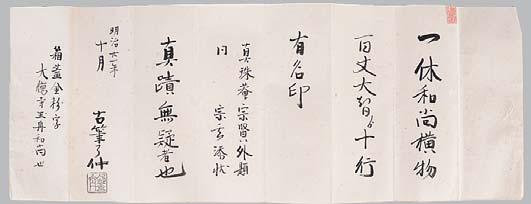 一休和尚横物
百丈大智ゟ十行
有名印
真珠菴宗賢外題
同 宗玄添状
真蹟無疑者也
明治廿一年
十月
古筆了仲
箱蓋金粉字
大徳寺玉舟和尚也